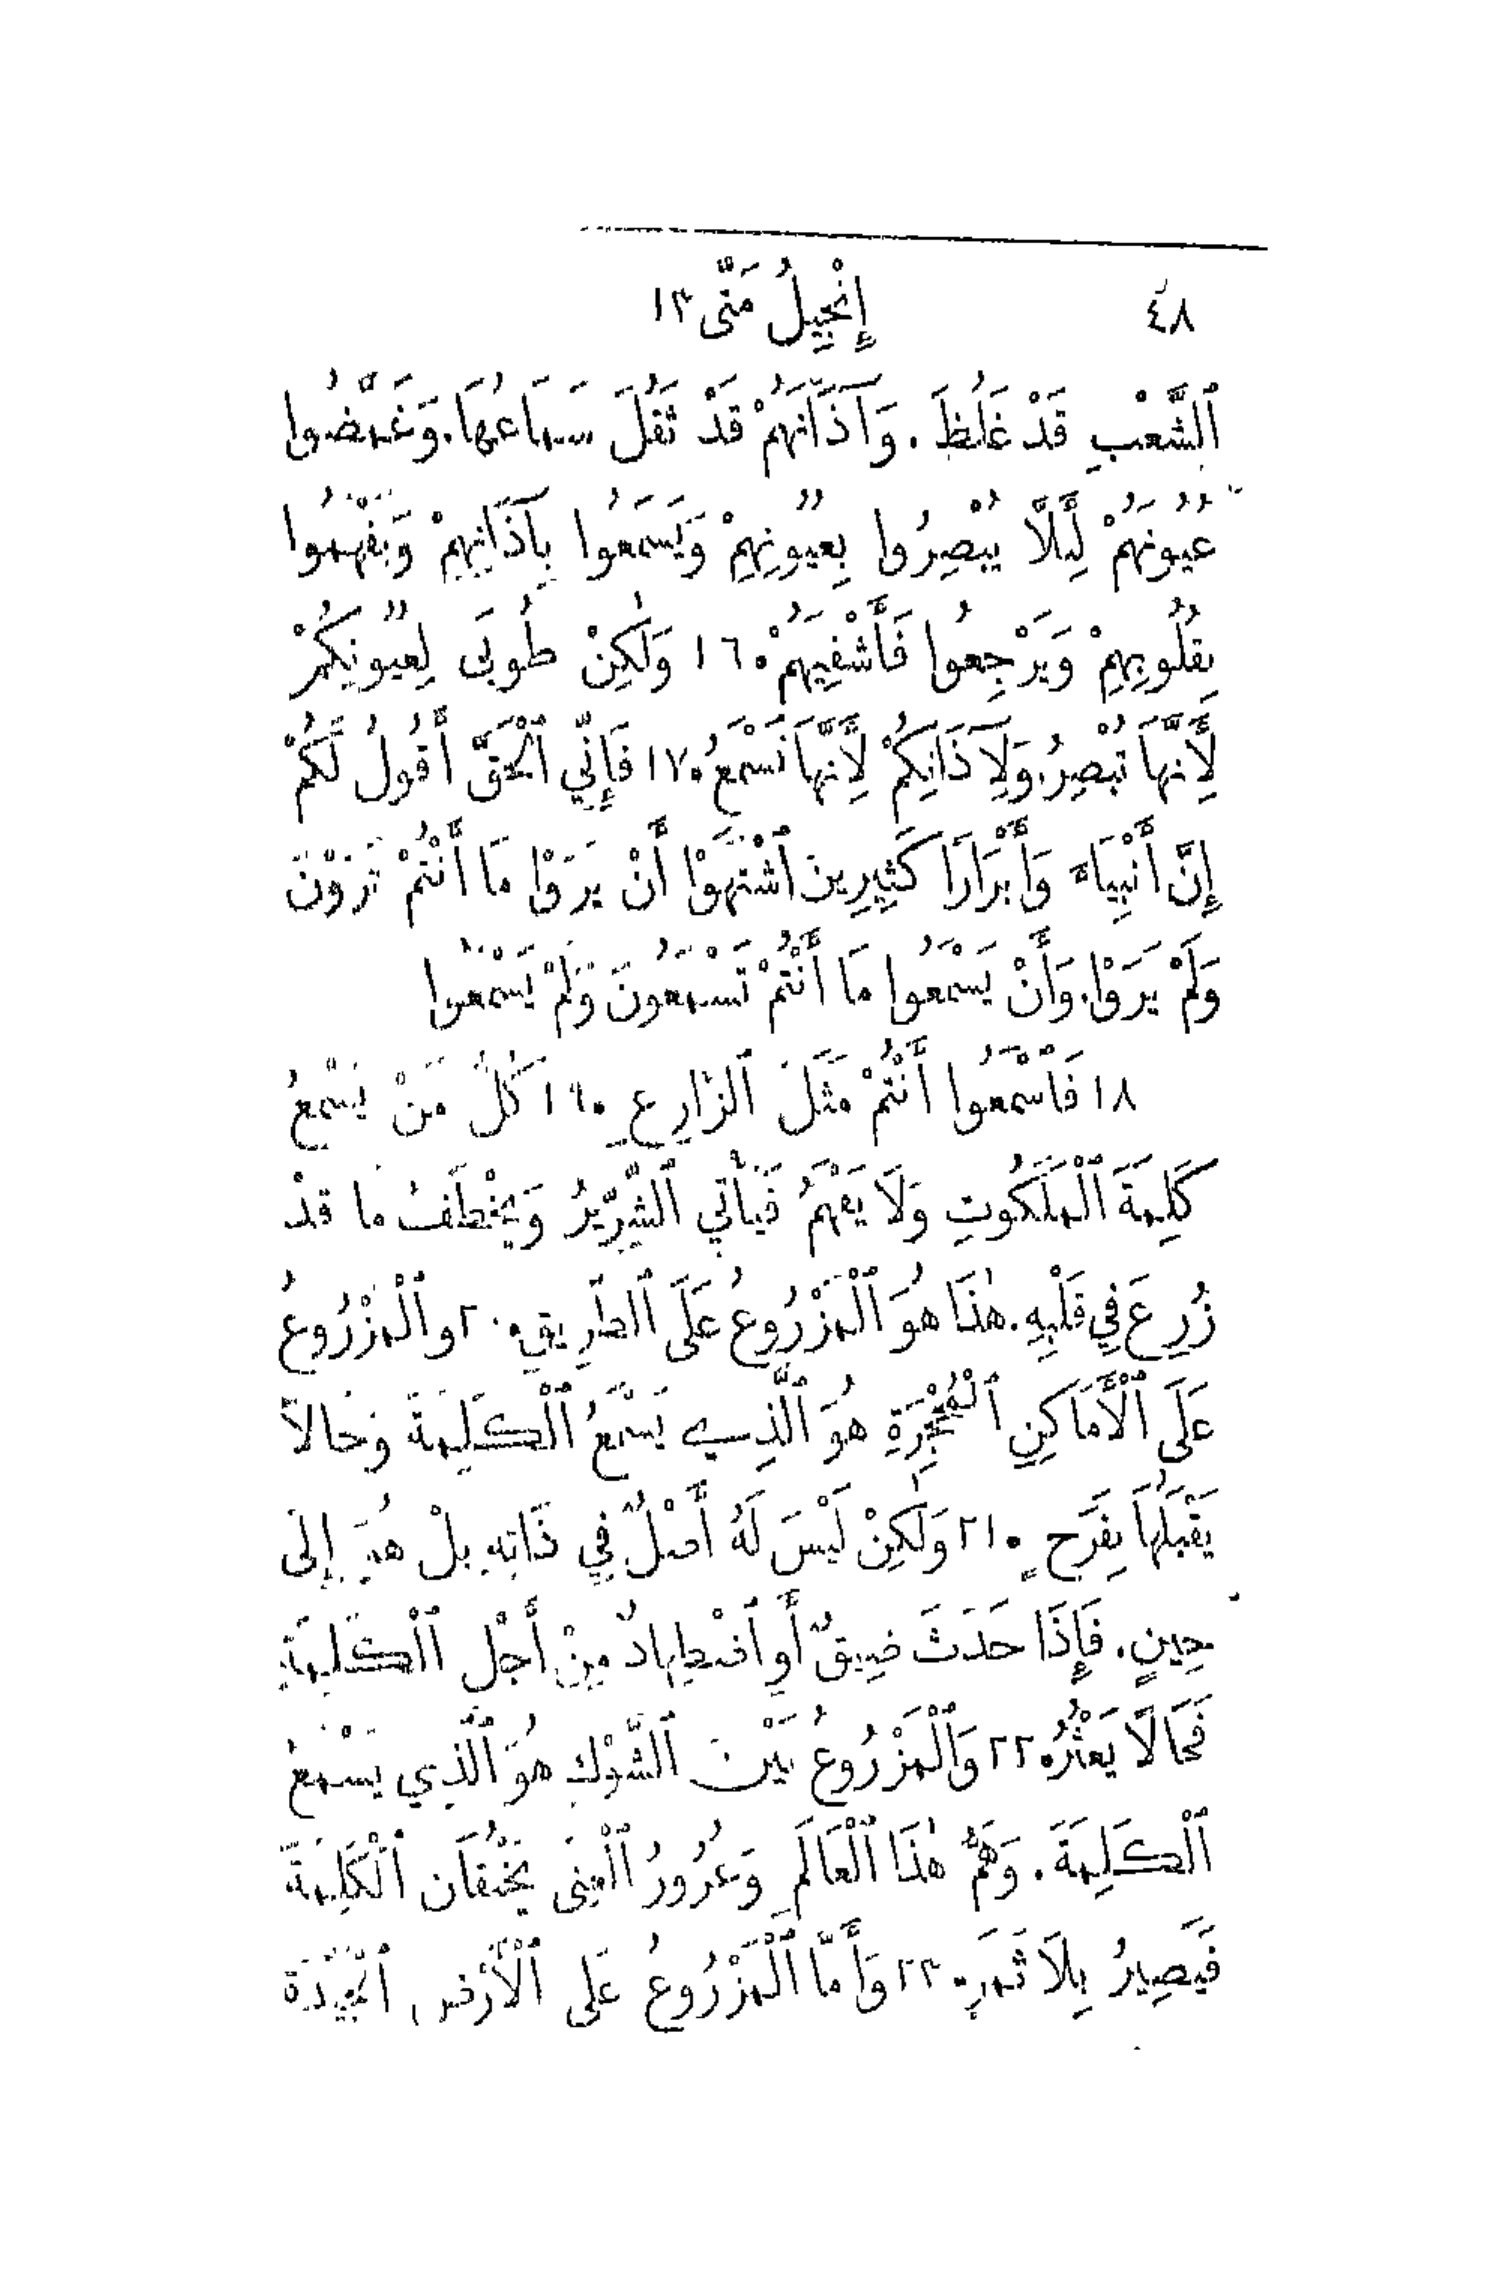 ٤٨ إِنْجِيلُ مَتَّى ١٣
ٱلشَّعْبِ قَدْ غَلُظَ. وَآذَانَهُمْ قَدْ ثَقُلَ سَمَاعُهَا. وَغَمَّضُوا
عُيُونَهُمْ لِئَلَّا يُبْصِرُوا بِعُيُونِهِمْ وَيَسْمَعُوا بِآذَانِهِمْ وَيَفْهَمُوا
بِقُلُوبِهِمْ وَيَرْجِعُوا فَأَشْفِيَهُمْ. ١٦ وَلٰكِنْ طُوبَى لِعُيُونِكُمْ
لِأَنَّهَا تُبْصِرُ. وَلِآذَانِكُمْ لِأَنَّهَا تَسْمَعُ. ١٧ فَإِنِّي ٱلْحَقَّ أَقُولُ لَكُمْ
إِنَّ أَنْبِيَاءَ وَأَبْرَارًا كَثِيرِينَ ٱشْتَهَوْا أَنْ يَرَوْا مَا أَنْتُمْ تَرَوْنَ
وَلَمْ يَرَوْا. وَأَنْ يَسْمَعُوا مَا أَنْتُمْ تَسْمَعُونَ وَلَمْ يَسْمَعُوا
١٨ فَٱسْمَعُوا أَنْتُمْ مَثَلَ ٱلزَّارِعِ. ١٩ كُلُّ مَنْ يَسْمَعُ
كَلِمَةَ ٱلْمَلَكُوتِ وَلَا يَفْهَمُ فَيَأْتِي ٱلشِّرِّيرُ وَيَخْطَفُ مَا قَدْ
زُرِعَ فِي قَلْبِهِ. هٰذَا هُوَ ٱلْمَزْرُوعُ عَلَى ٱلطَّرِيقِ. ٢٠ وٱلْمَزْرُوعُ
عَلَى ٱلْأَمَاكِنِ ٱلْمُحْجِرَةِ هُوَ ٱلَّذِي يَسْمَعُ ٱلْكَلِمَةَ وَحَالًا
يَقْبَلُهَا بِفَرَحٍ. ٢١ وَلٰكِنْ لَيْسَ لَهُ أَصْلٌ فِي ذَاتِهِ بَلْ هُوَ إِلَى
حِينٍ. فَإِذَا حَدَثَ ضِيقٌ أَوِ ٱضْطِهَادٌ مِنْ أَجْلِ ٱلْكَلِمَةِ
فَحَالًا يَعْثُرُ. ٢٢ وَٱلْمَزْرُوعُ بَيْنَ ٱلشَّوْكِ هُوَ ٱلَّذِي يَسْمَعُ
ٱلْكَلِمَةَ. وَهَمُّ هٰذَا ٱلْعَالَمِ وَغُرُورُ ٱلْغِنَى يَخْنُقَانِ ٱلْكَلِمَةَ
فَيَصِيرُ بِلَا ثَمَرٍ. ٢٣ وَأَمَّا ٱلْمَزْرُوعُ عَلَى ٱلْأَرْضِ ٱلْجَيِّدَةِ